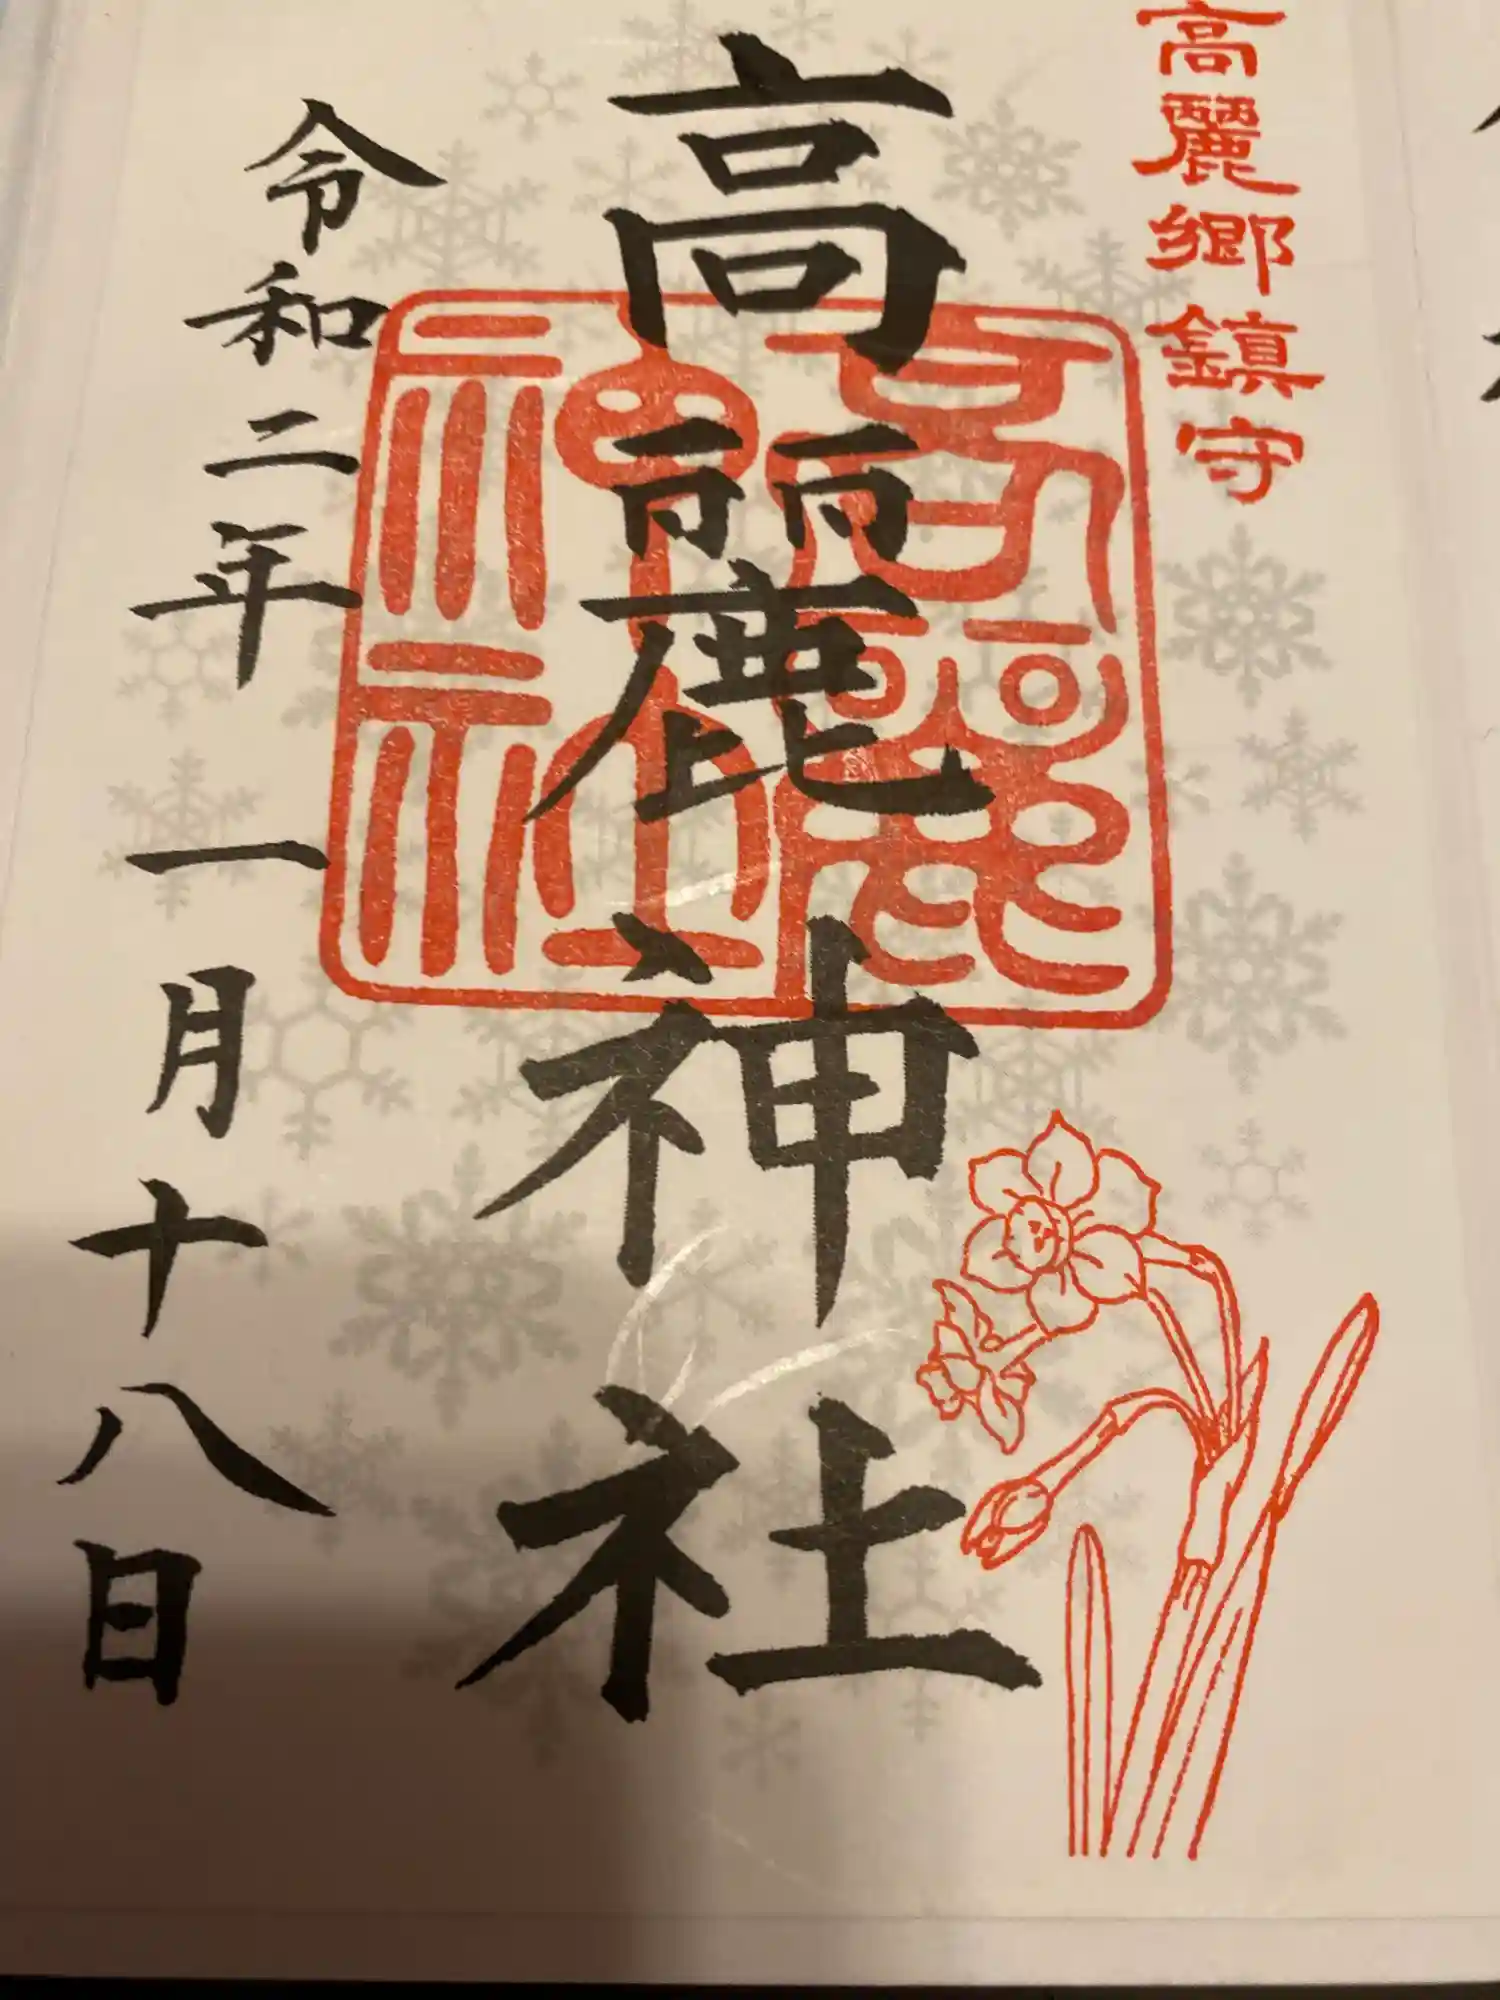 高麗郷鎮守
高麗神社
令和二年一月十八日
高麗
神社